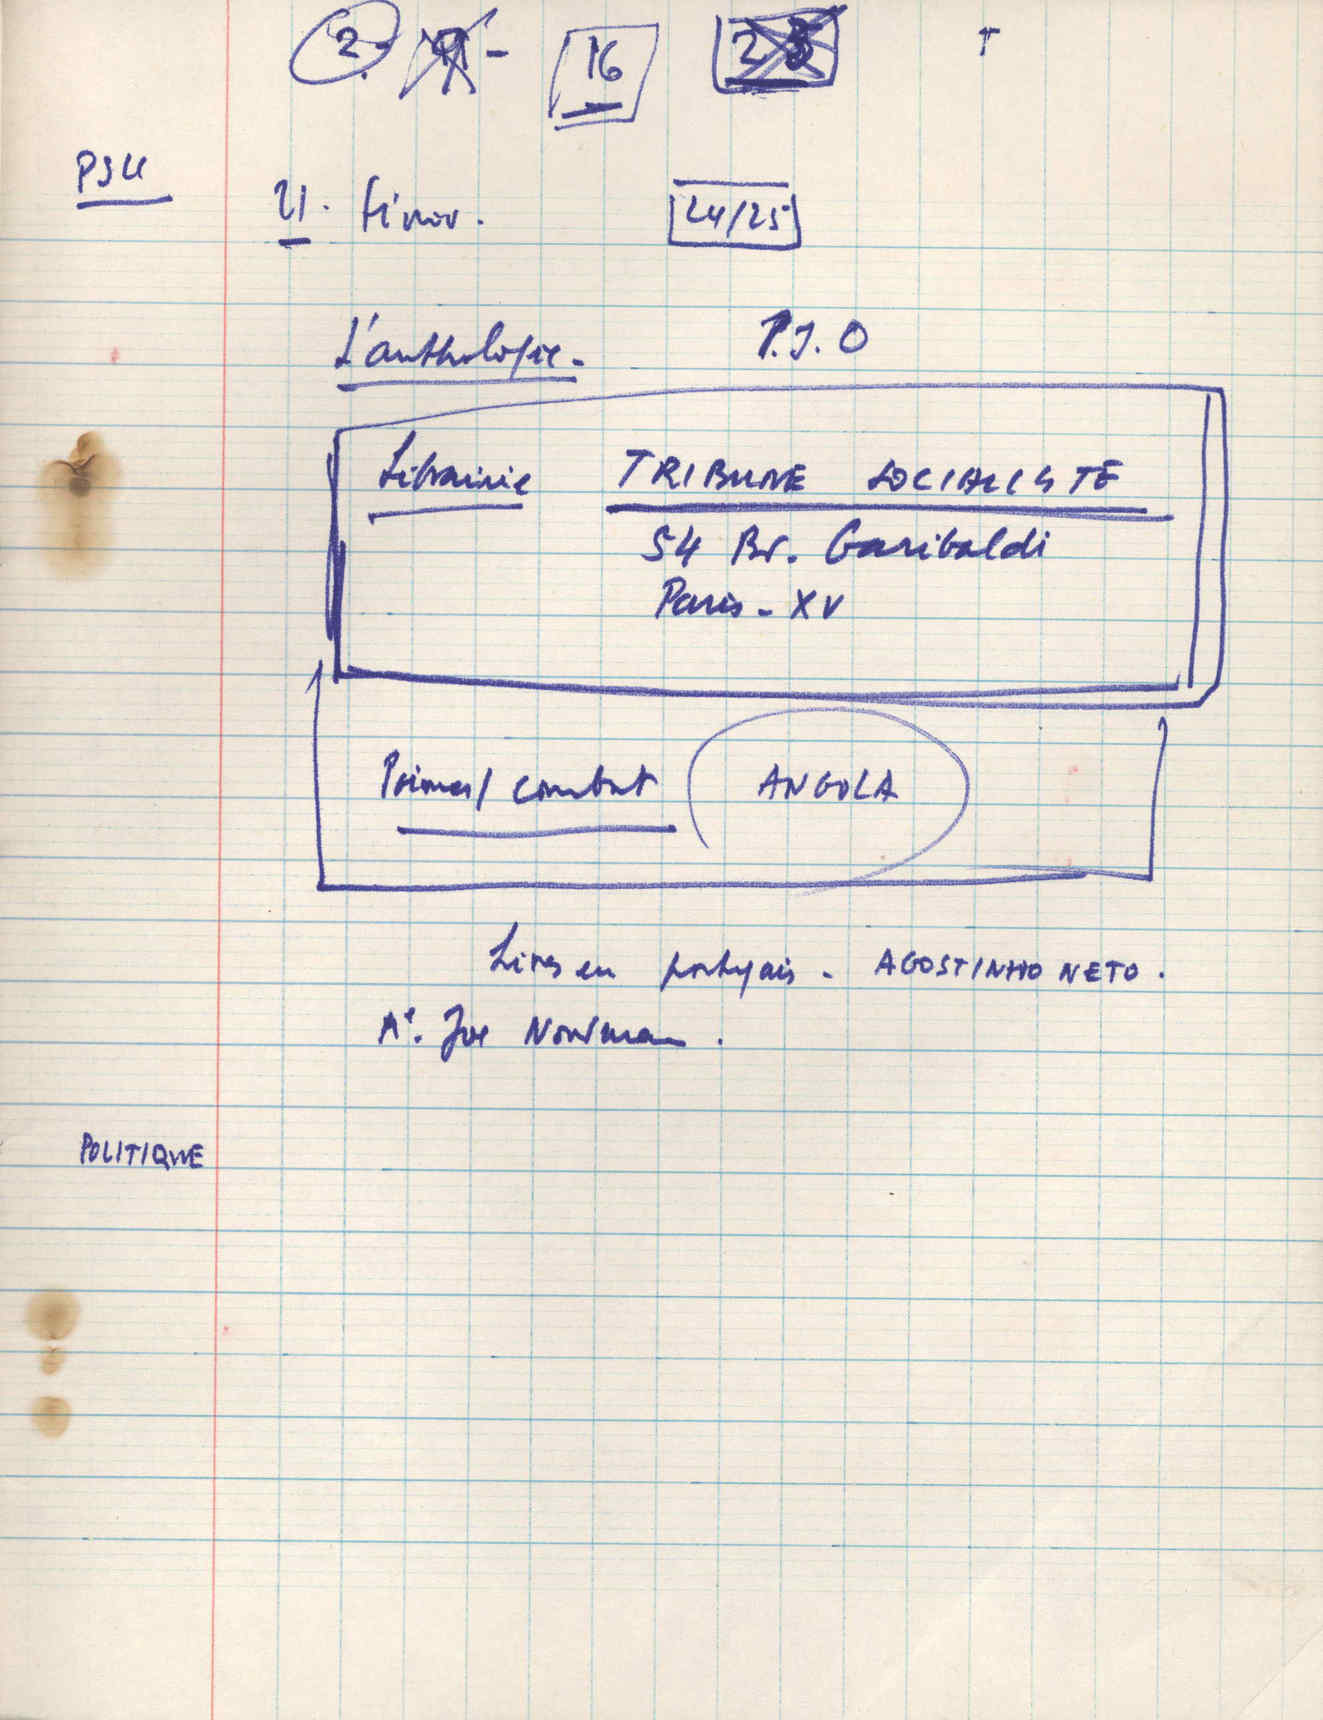 2. 16
PSU
21. 24/25
L'anthologie. P.J.O
Librairie TRIBUNE SOCIALISTE
54 Bv. Garibaldi
Paris - XV
Poèmes/ combat ANGOLA
Livres en portugais - AGOSTINHO NETO.
Joe
POLITIQUE